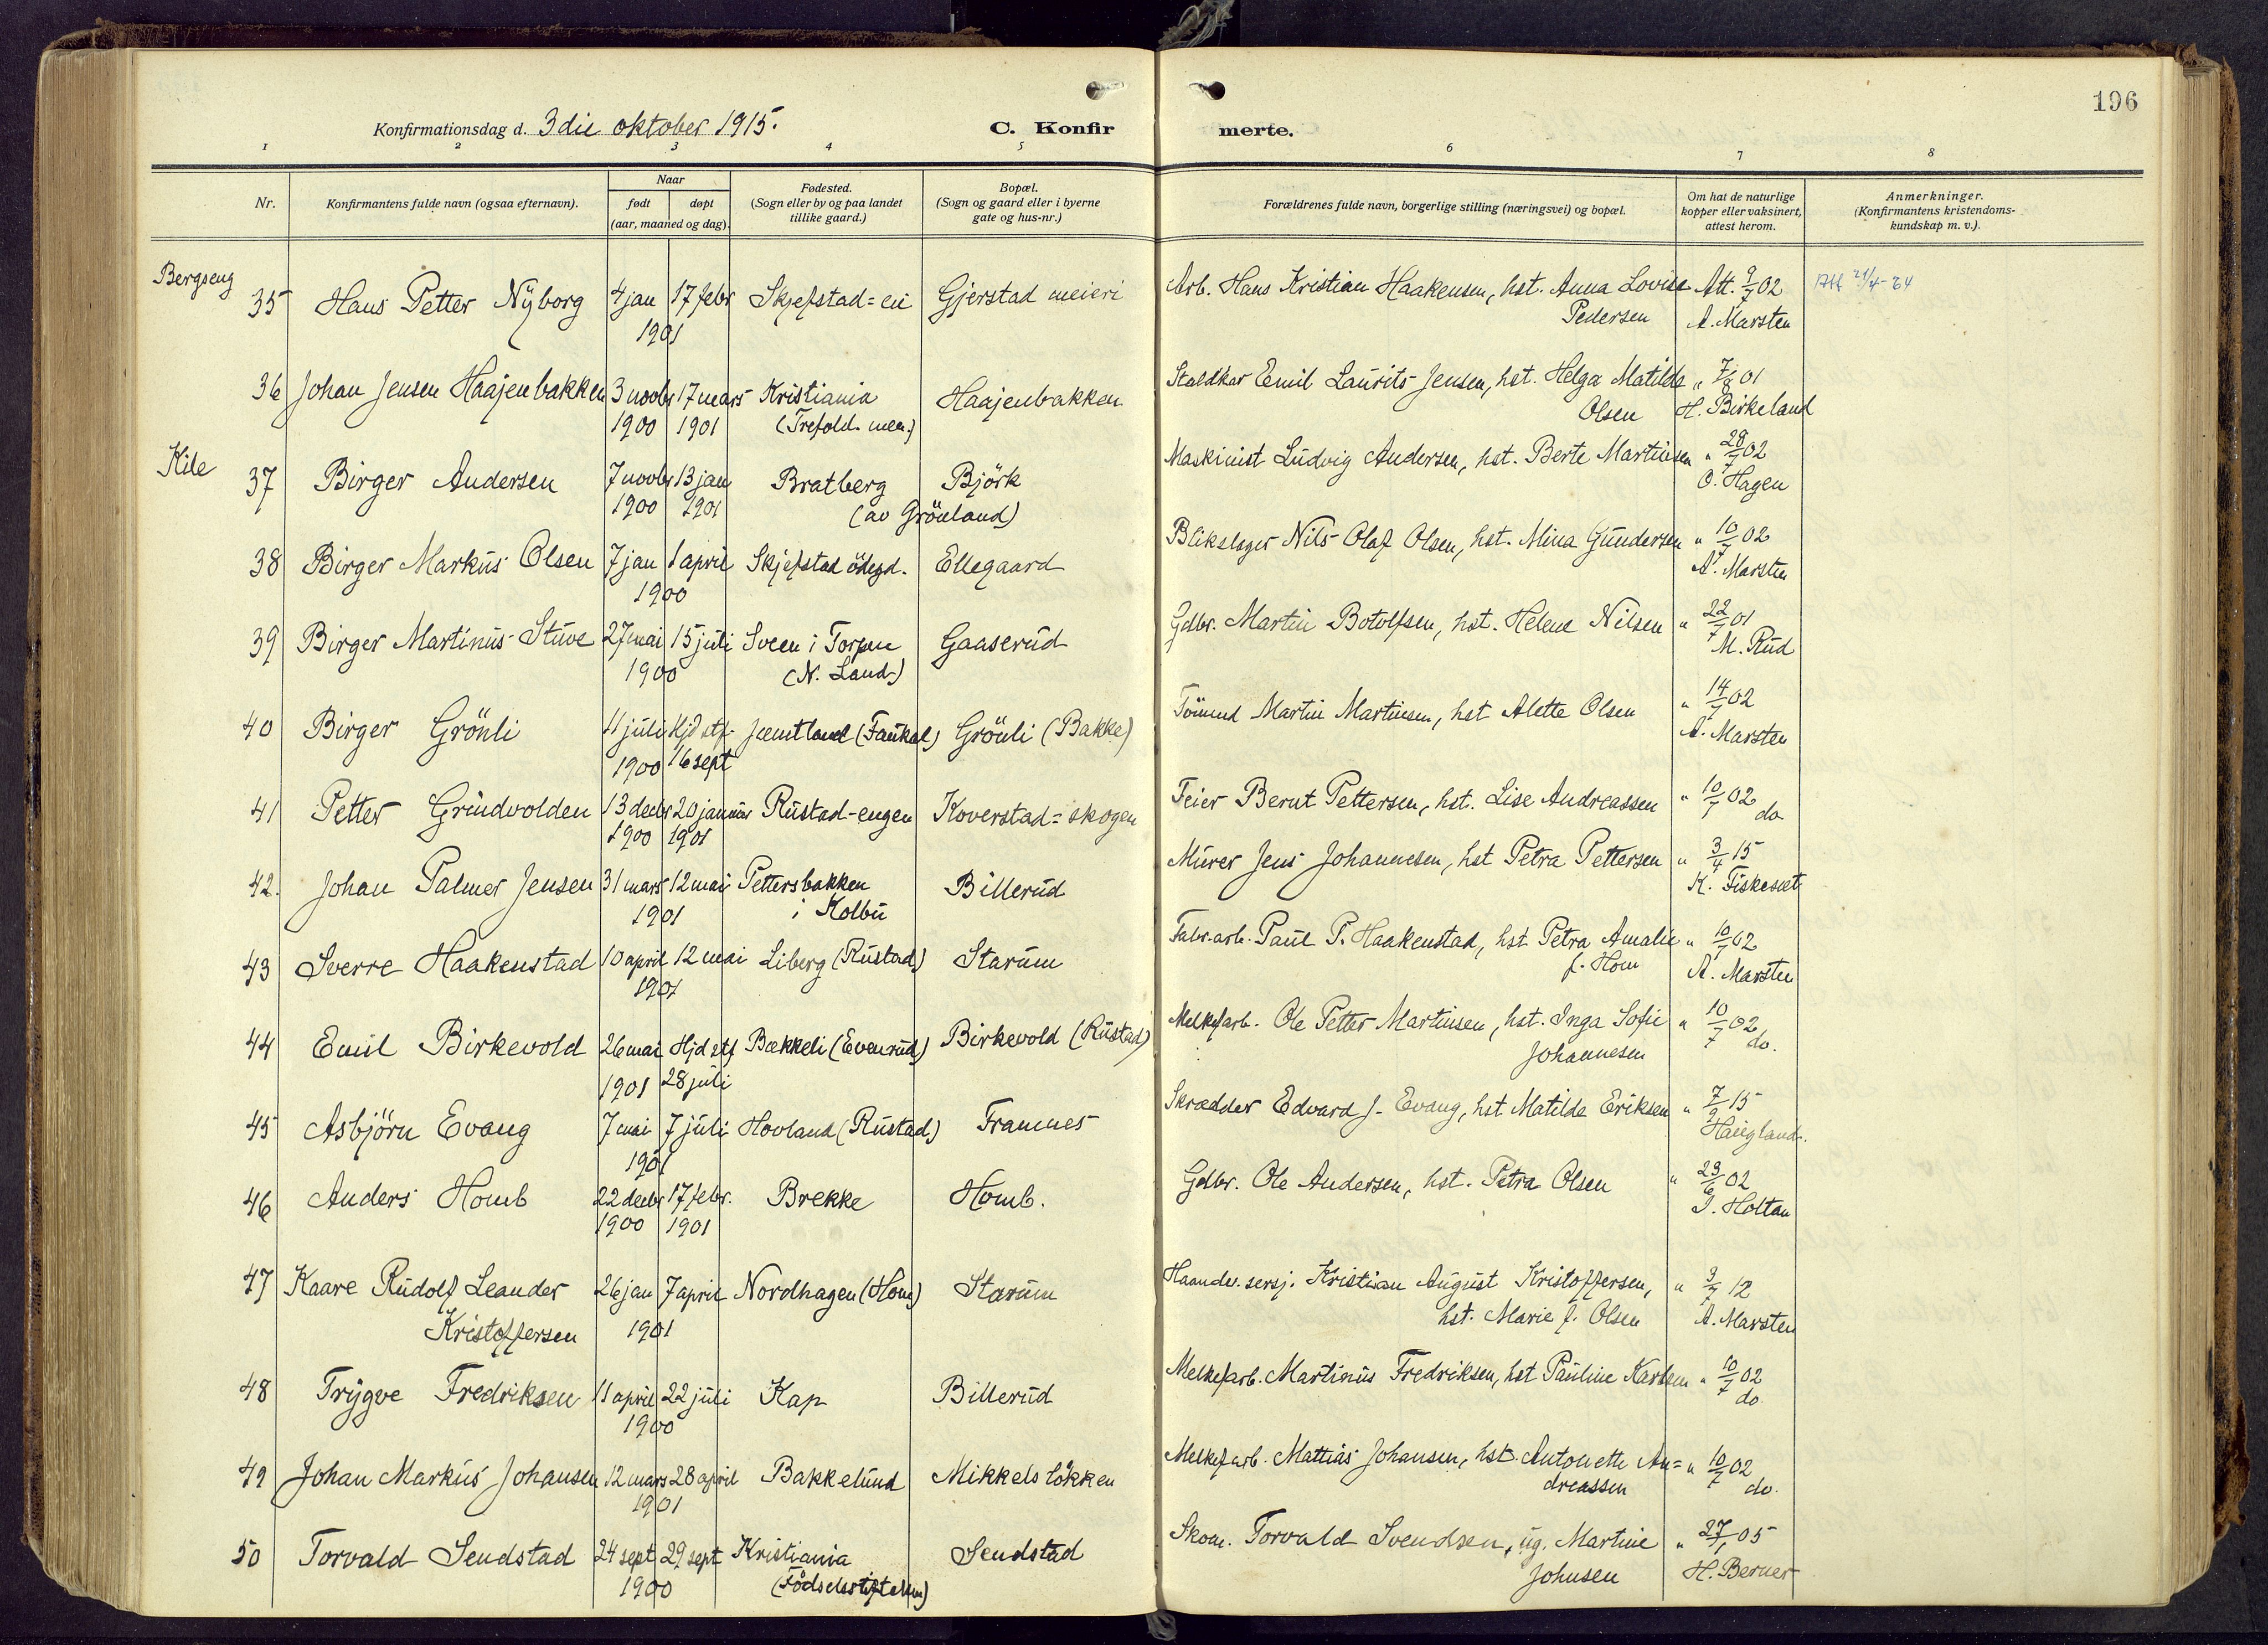 196
Konfirmationsdag d. 3die oktober 1915.
C. Konfirmerte.
1 2 3 4 5 6 7 8
Nr.
Konfirmantens fulde navn (ogsaa efternavn).
Naar
født døpt
(aar, maaned og dag).
Fødested.
(Sogn eller by og paa landet
tillike gaard.)
Bopæl.
(Sogn og gaard eller i byerne
gate og hus-nr.)
Forældrenes fulde navn, borgerlige stilling (næringsvei) og bopæl.
Om hat de naturlige
kopper eller vaksinert,
attest herom.
Anmerkninger.
(Konfirmantens kristendoms-
kundskap m. v.).
Bergseng
35 Hans Petter Nÿborg 4 jan 17 febr Skjefstad=ei Gjerstad meieri Arb. Hans Kristian Haakensen, hst. Anna Lovise Att. 9/7 02 21/4-64
1901 Pedersen A. Marsten
36 Johan Jensen Haajenbakken 3 novbr 17 mars Kristiania Haajenbakken Staldkar Emil Laurits Jensen, hst. Helga Matilde " 7/8 01
1900 1901 (Trefold. men.) Olsen H. Birkeland
Kile
37 Birger Andersen 7 novbr 13 jan Bratberg Björk Maskinist Ludvig Andersen, hst. Berte Martinsen " 28/7 02
1900 1901 (av Grönland) O. Hagen
38 Birger Markus Olsen 7 jan 1 april Skjefstad ödegd. Ellegaard Blikslager Nils Olaf Olsen, hst. Mina Gundersen " 10/7 02
1900 A. Marsten
39 Birger Martinus Stuve 27 mai 15 juli Sveen i Torpen Gaaserud Gdbr. Martin Botolfsen, hst. Helene Nilsen " 22/7 01
1900 (N. Land) M. Rud
40 Birger Grönli 11 juli Hjd stf. Jemtland (Faukal) Grönli (Bakke) Tömmd Martin Martinsen, hst Alette Olsen " 14/7 02
1900 16 sept A. Marsten
41 Petter Grindvolden 13 decbr 20 januar Rustad-engen Koverstad=skogen Feier Bernt Pettersen, hst. Lise Andreassen " 10/7 02
1900 1901 do
42. Johan Palmer Jensen 31 mars 12 mai Pettersbakken Billerud Murer Jens Johannesen, hst Petra Pettersen " 3/4 15
1901 i Kolbu K. Fiskeset
43 Sverre Haakenstad 10 april 12 mai Liberg (Rustad) Starum Fabr. arb. Paul P. Haakenstad, hst Petra Amalie " 10/7 02
1901 f. Hom A. Marsten
44 Emil Birkevold 26 mai Hjd stf Bækkeli (Evenrud) Birkevold (Rustad) Melkefarb. Ole Petter Martinsen, hst. Inga Sofie " 10/7 02
1901 28 juli Johannesen do.
45 Asbjörn Evang 7 mai 7 juli Hovland (Rustad) Framnes Skrædder Edvard J. Evang, hst Matilde Eriksen " 7/9 15
1901 Haugland.
46 Anders Homb 22 decbr 17 febr. Brekke Homb. Gdbr. Ole Andersen, hst. Petra Olsen " 23/6 02
1900 1901 J. Holtan
47 Kaare Rudolf Leander 26 jan 7 april Nordhagen (Hom) Starum Haandv. sersj. Kristian August Kristoffersen, " 9/7 12
Kristoffersen 1901 hst. Marie f. Olsen A. Marsten
48 Trygve Fredriksen 11 april 22 juli Kap Billerud Melkefarb. Martinus Fredriksen, hst Pauline Karlsen " 10/7 02
1900 do
49 Johan Markus Johansen 12 mars 28 april Bakkelund Mikkelslökken Melkefarb. Mattias Johansen, hst. Antonette An= " 10/7 02
1901 dreassen do.
50 Torvald Sendstad 24 sept 29 sept Kristiania Sendstad Skom. Torvald Svendsen, ug. Martine " 27/1 05
1900 (Födselsstiftelsen) Johnsen H. Berner